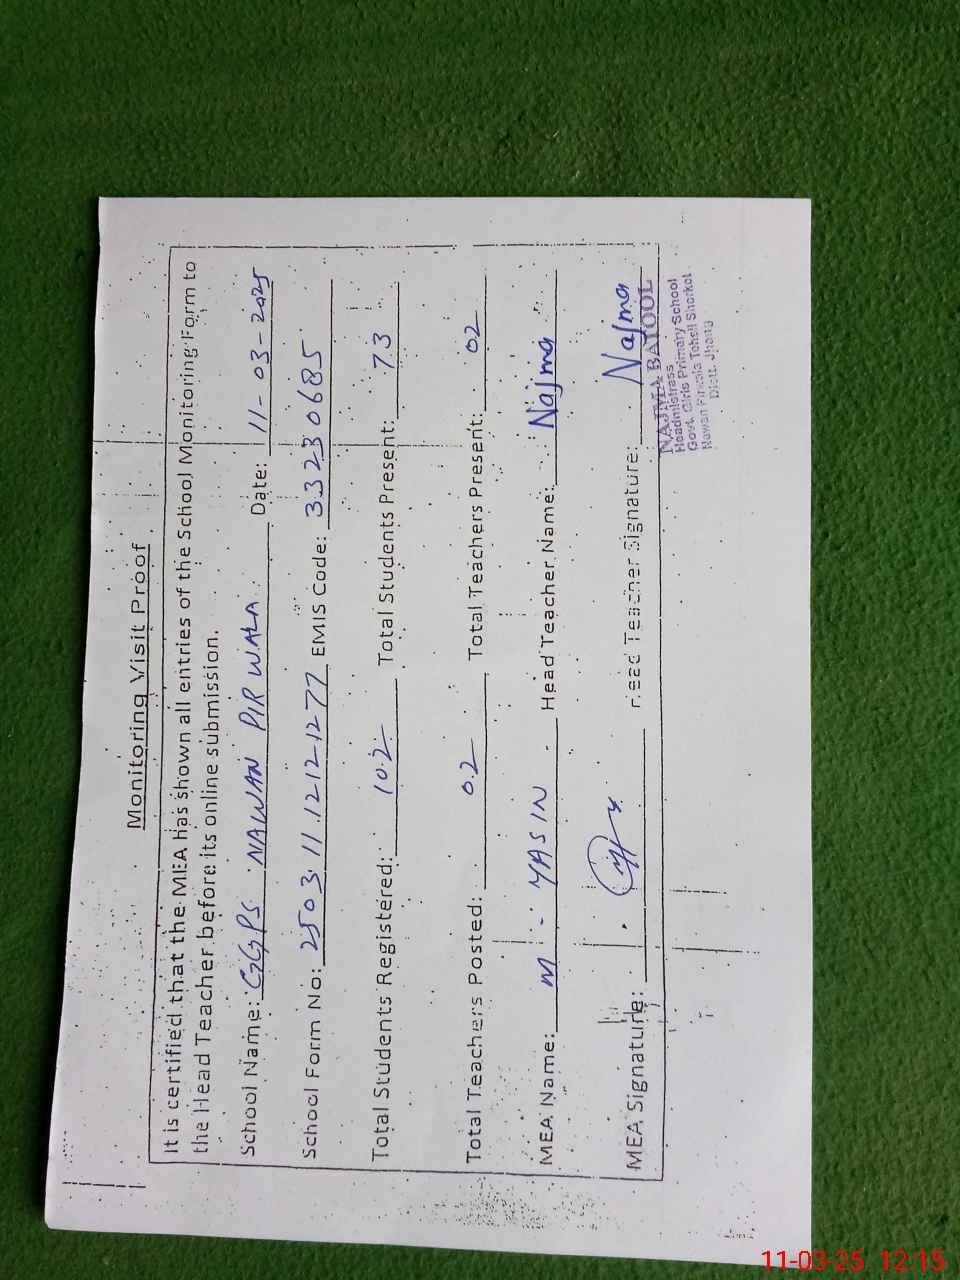 Monitoring Visit Proof
It is certified that the MEA has shown all entries of the School Monitoring Form to
the Head Teacher before its online submission.
School Name: GGPS NAWAN PIR WALA Date: 11-03-2025
School Form No: 2503.11.1212-1277 EMIS Code: 33230685
Total Students Registered: 102 Total Students Present: 73
Total Teachers Posted: 02 Total Teachers Present: 02
MEA Name: M. YASIN Head Teacher Name: Najma
MEA Signature: Head Teacher Signature: Najma
NAJMA BATOOL
Headmistrass
Govt. Girls Primary School
Nawan Pirwala Tehsil Shorkot
Distt. Jhang
11-03-25 12:15